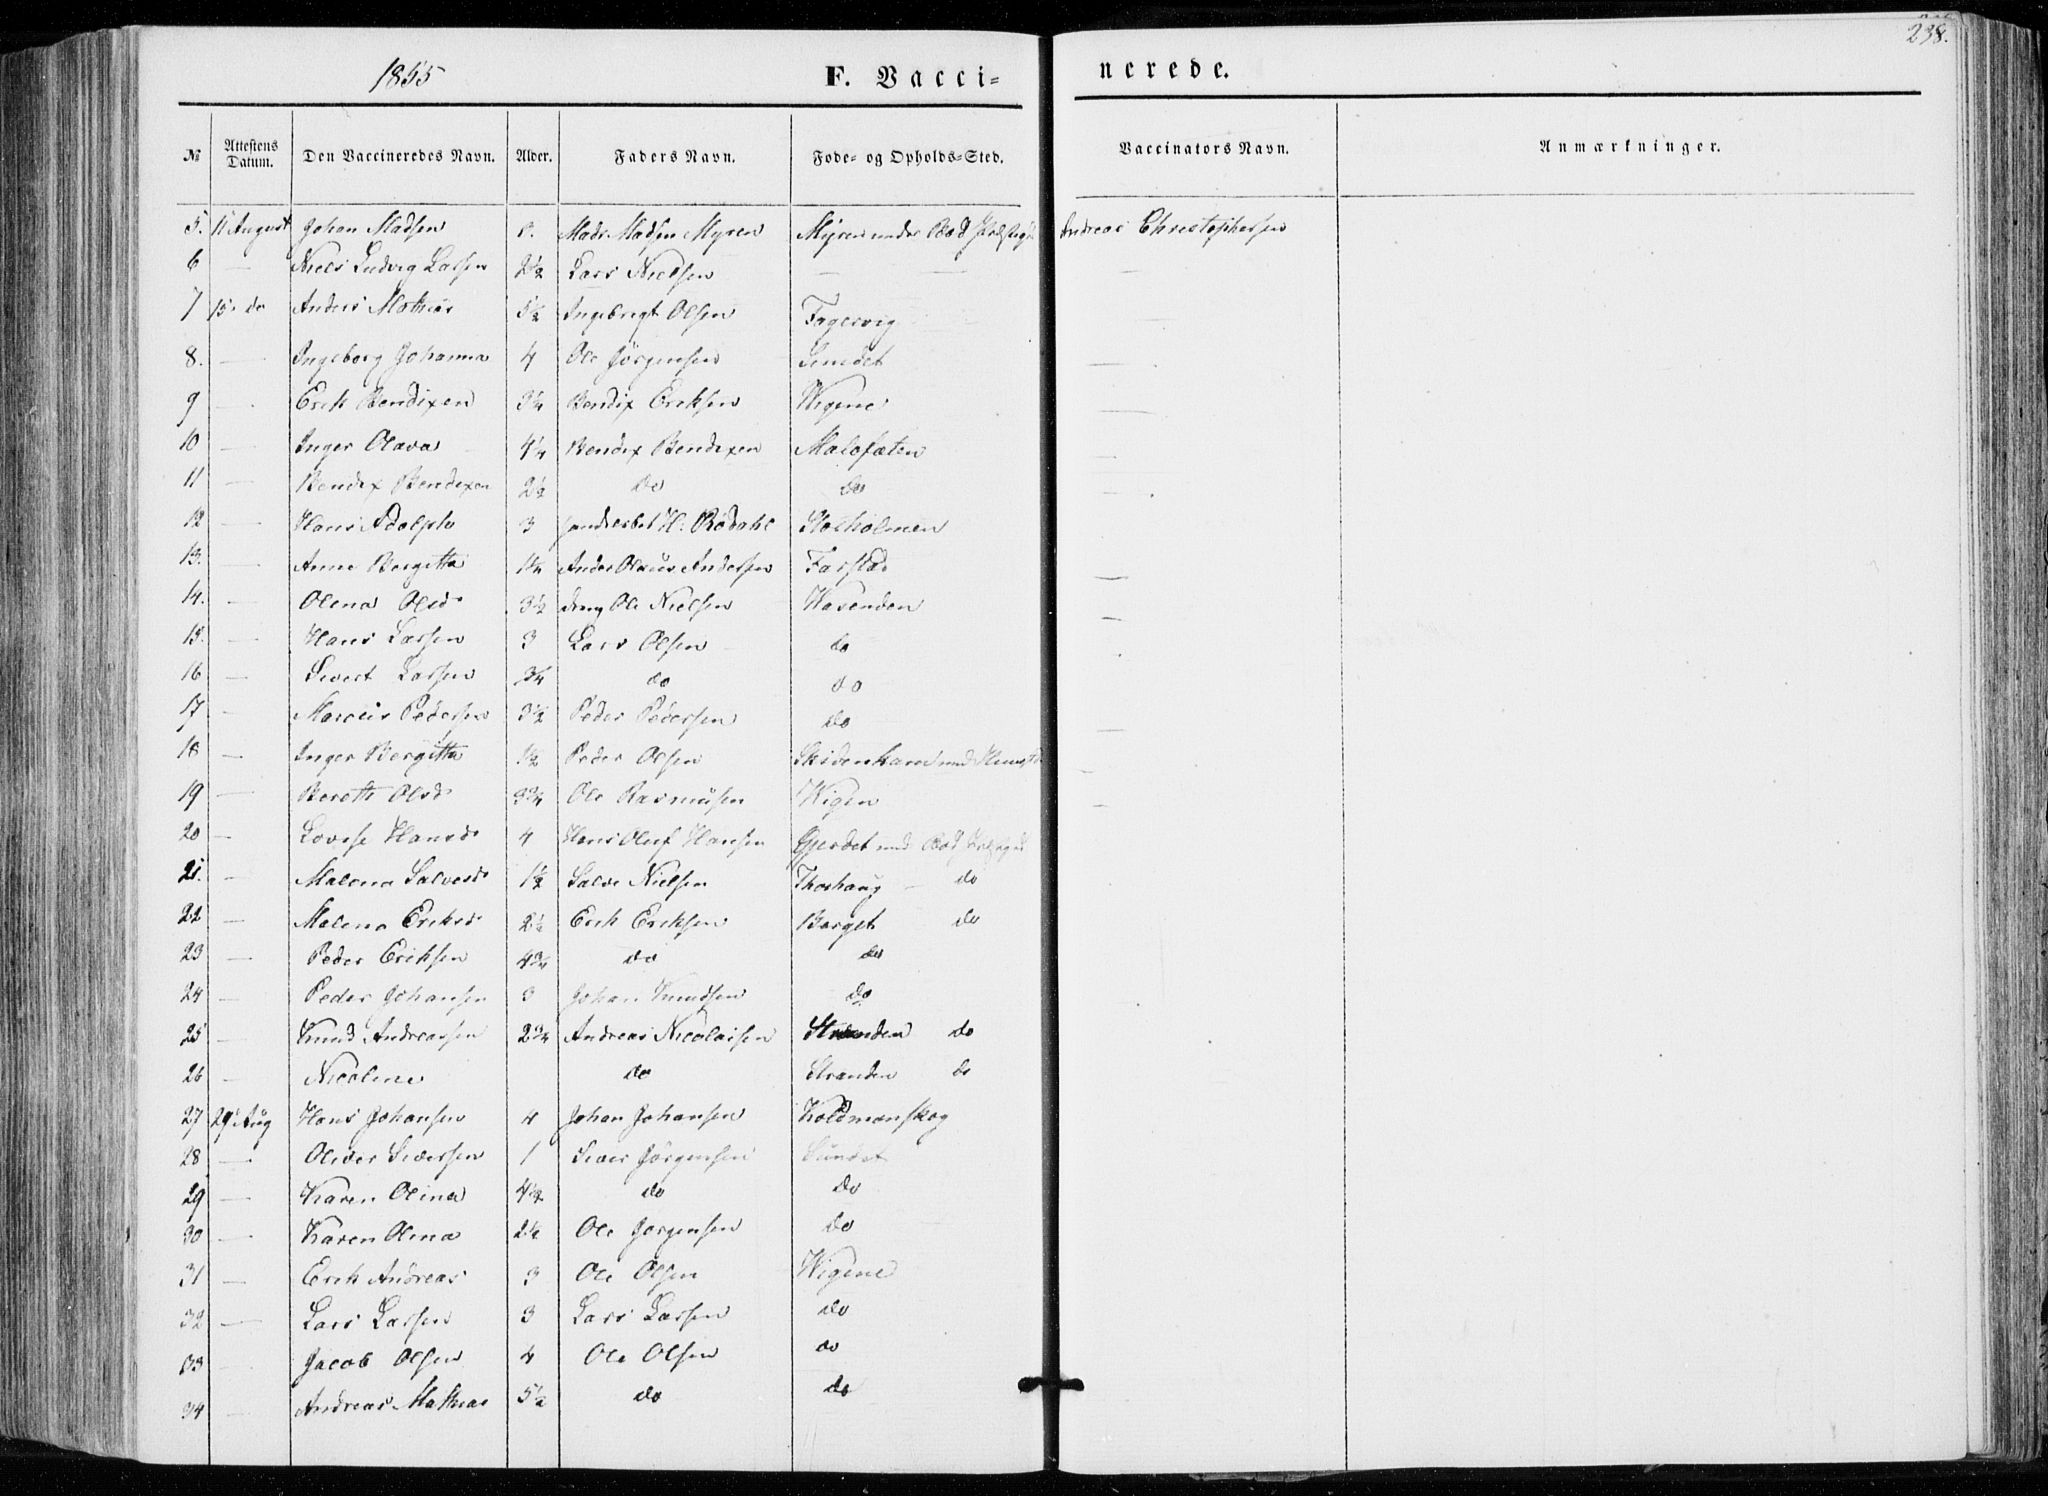 238.
1855
F. Vaccinerede.
№ | Attestens Datum. | Den Vaccineredes Navn. | Alder. | Faders Navn. | Føde- og Opholds-Sted. | Vaccinators Navn. | Anmærkninger.
5. | 11 August | Johan Madsen | | Mads Madsen Myren | Myren under Bod | Andreas Christophersen
6 | — | Niels Ludvig Larsen | 2½ | Lars Nielsen | — | —
7 | 15. do | Anders Mathias | 5½ | Ingebrigt Olsen | Fagervig | —
8. | — | Ingeborg Johanna | 4 | Ole Jörgensen | Sundet | —
9 | — | Erik Bendixen | 3¼ | Bendix Eriksen | Wigene | —
10 | — | Inger Olava | 4¼ | Bendix Bendixen | Malefeten | —
11 | — | Bendix Bendixen | 2½ | do | do | —
12 | — | Hans Adolph | 3 | H. Rødahl | Storholmen
13. | — | Anne Bergitta | 1¼ | Anders Olaus Andersen | Farstad | —
14. | — | Olena Olsd | 3½ | Ole Nielsen | Havenden | —
15. | — | Hans Larsen | 3 | Lars Olsen | do | —
16 | — | Sivert Larsen | ¾ | do | do | —
17 | — | Marcus Pedersen | 3½ | Peder Pedersen | do | —
18 | — | Inger Bergitta | 1½ | Peder Olsen | Skidenhavn | —
19 | — | Bereth Olsd | 3¾ | Ole Rasmusen | Wigen | —
20 | — | Lovise Hansd | 4 | Hans Oluf Hansen | Gjerdet und Bod
21. | — | Malena Salvesd | 1½ | Salve Nielsen | Thorhaug — do
22 | — | Malena Eriksd | 2½ | Erik Eriksen | Berget do
23 | — | Peder Eriksen | 4¾ | do | do
24 | — | Peder Johansen | 3 | Johan Knudsen | do
25 | — | Knud Andreassen | 2¾ | Andreas Nicolaisen | Stranden do
26 | — | Nicoline | | do | Stranden do
27 | 29 Aug | Hans Johansen | 4 | Johan Johansen | Koldmanskog
28 | — | Oliver Siversen | 1 | Siver Jørgensen | Sundet
29 | — | Karen Olina | 4½ | do | do
30 | — | Karen Olina | 2½ | Ole Jørgensen | do
31 | — | Erik Andreas | 3 | Ole Olsen | Wigene
32 | — | Lars Larsen | 3 | Lars Larsen | do
33 | — | Jacob Olsen | 4 | Ole Olsen | do
34 | — | Andreas Mathias | 5½ | do | do